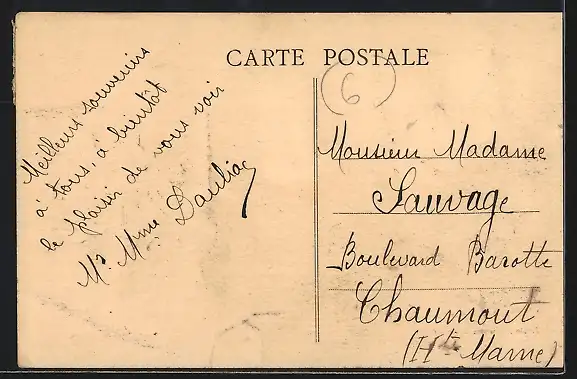 CARTE POSTALE
(6)
Meilleurs souvenirs
à tous, à bientôt
le plaisir de vous voir
Mr Mme Dauliac
Monsieur Madame
Sauvage
Boulevard Barotte
Chaumont
(Hte Marne)